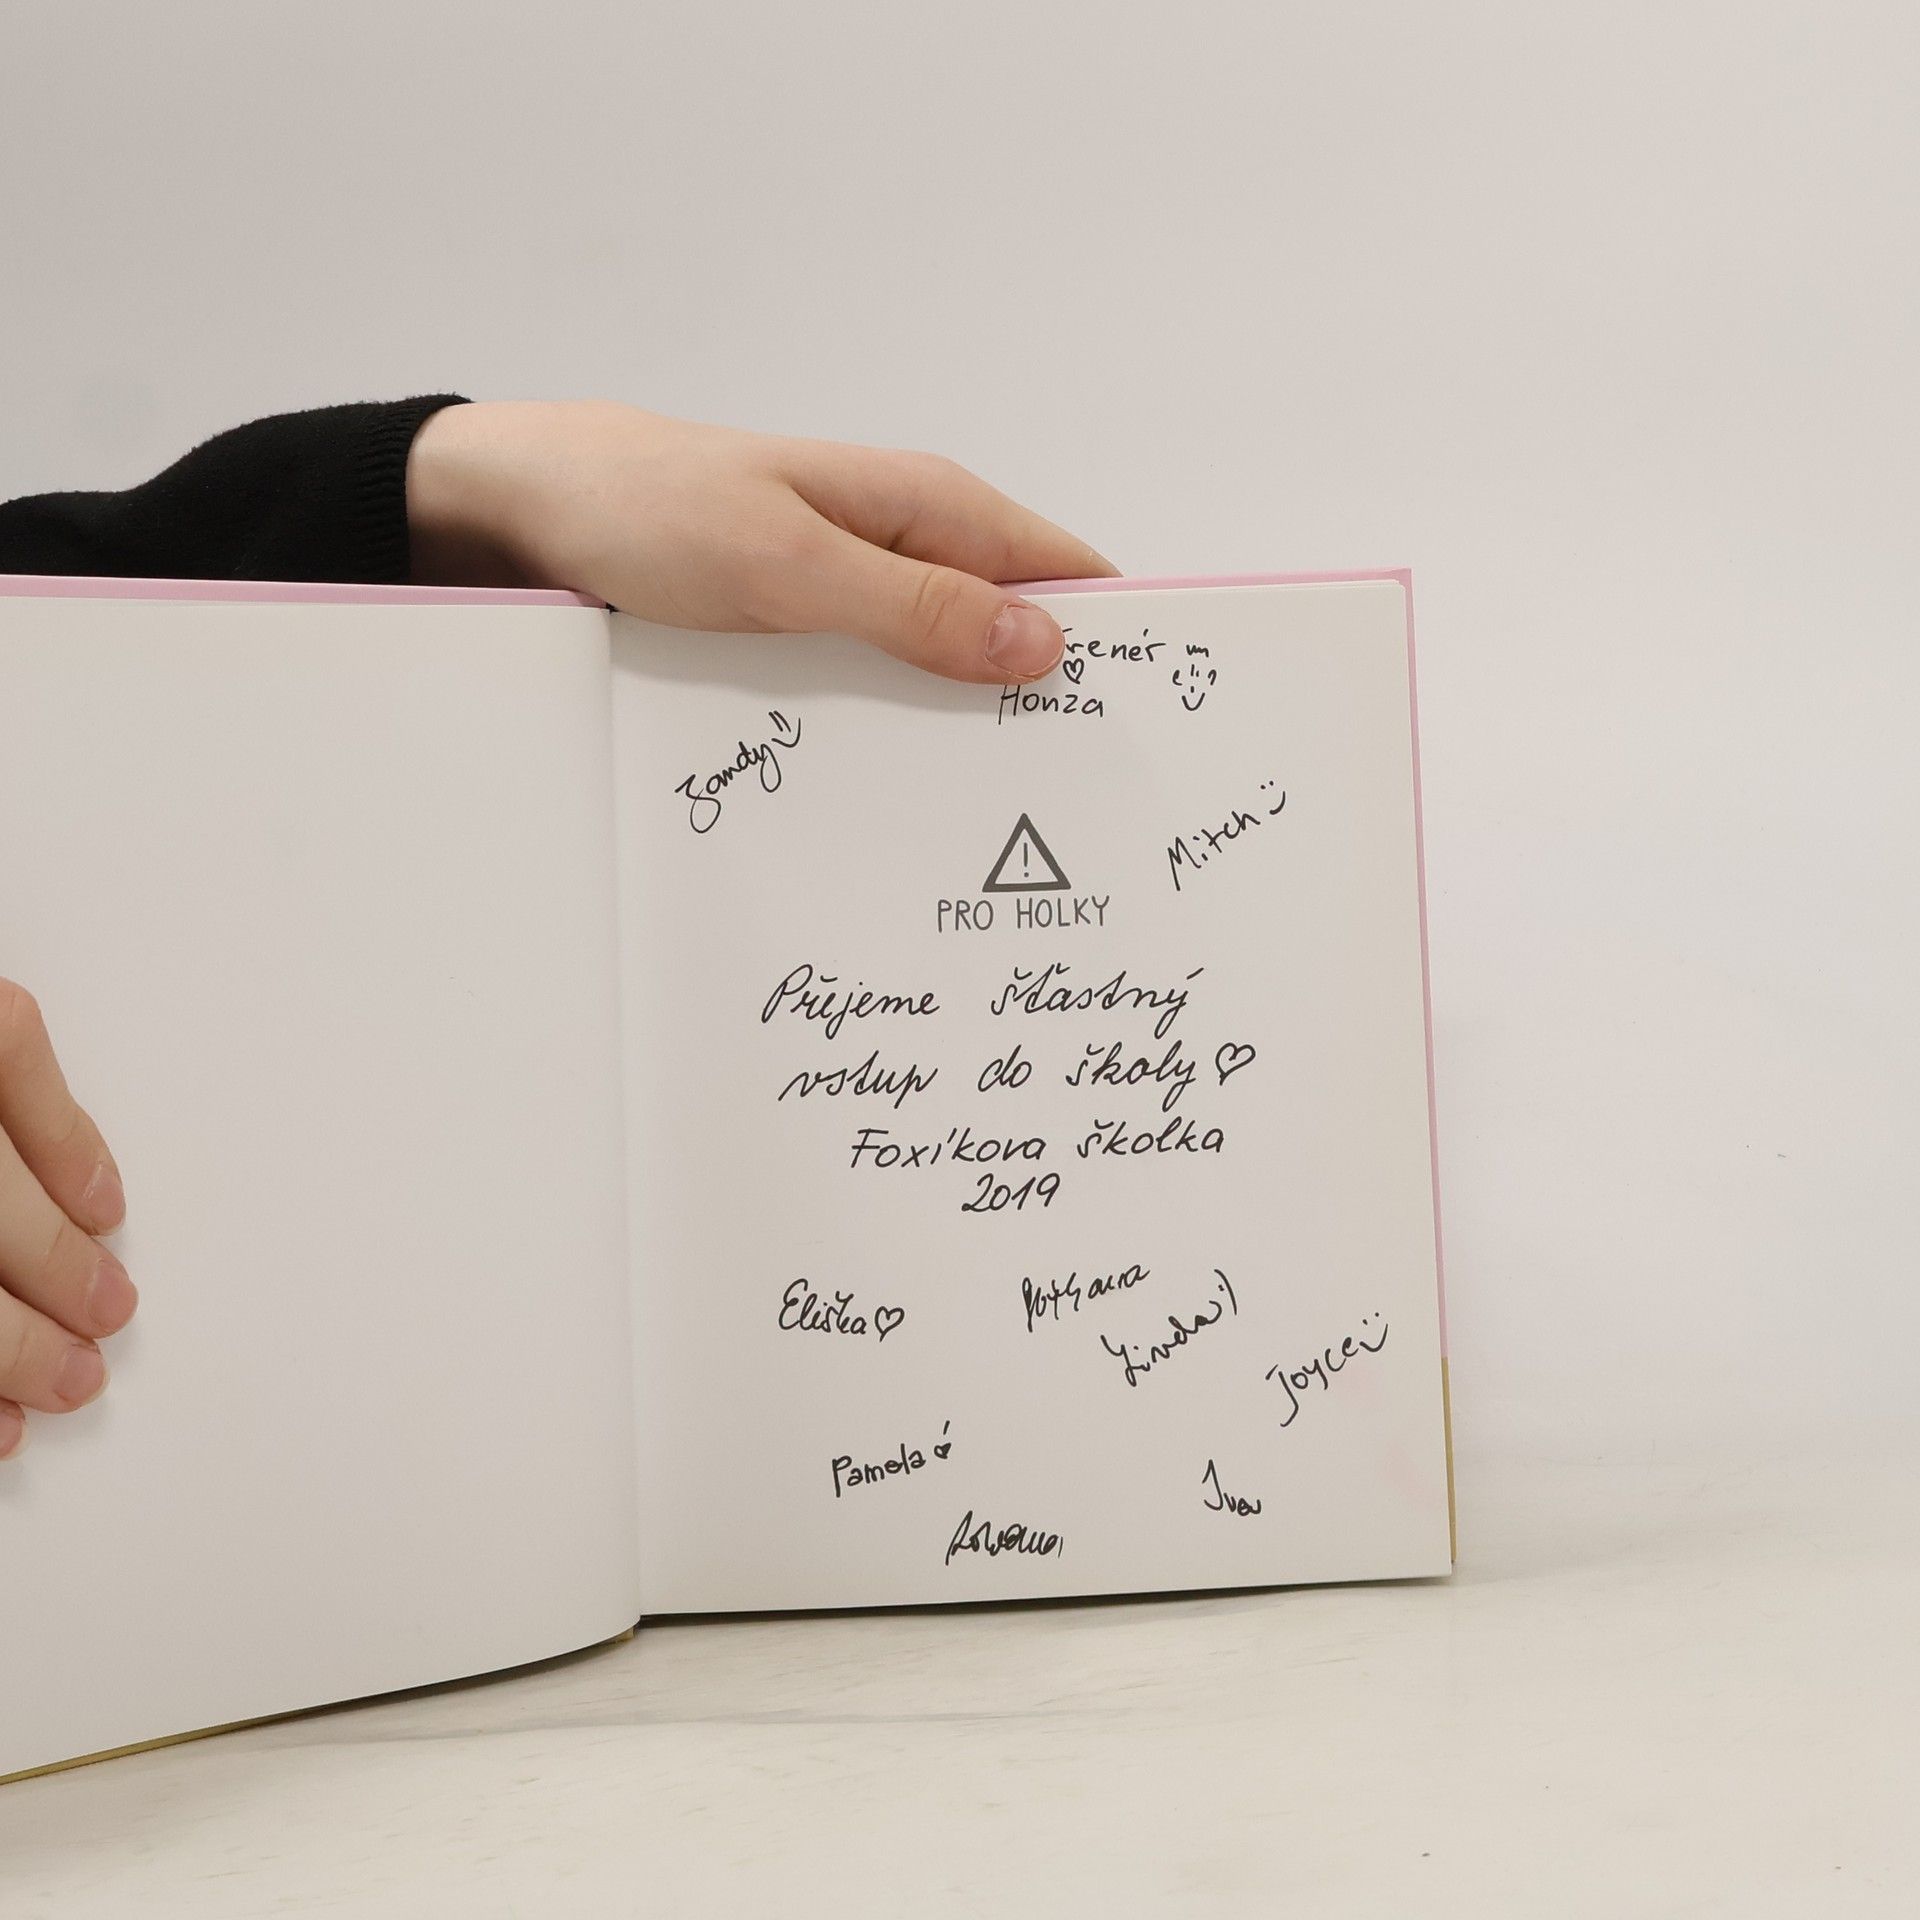 Trenér
Honza
Sandy
Mitch
PRO HOLKY
Přejeme šťastný
vstup do školy
Foxíkova školka
2019
Eliška
Linda :)
Joyce
Pamela
Iva